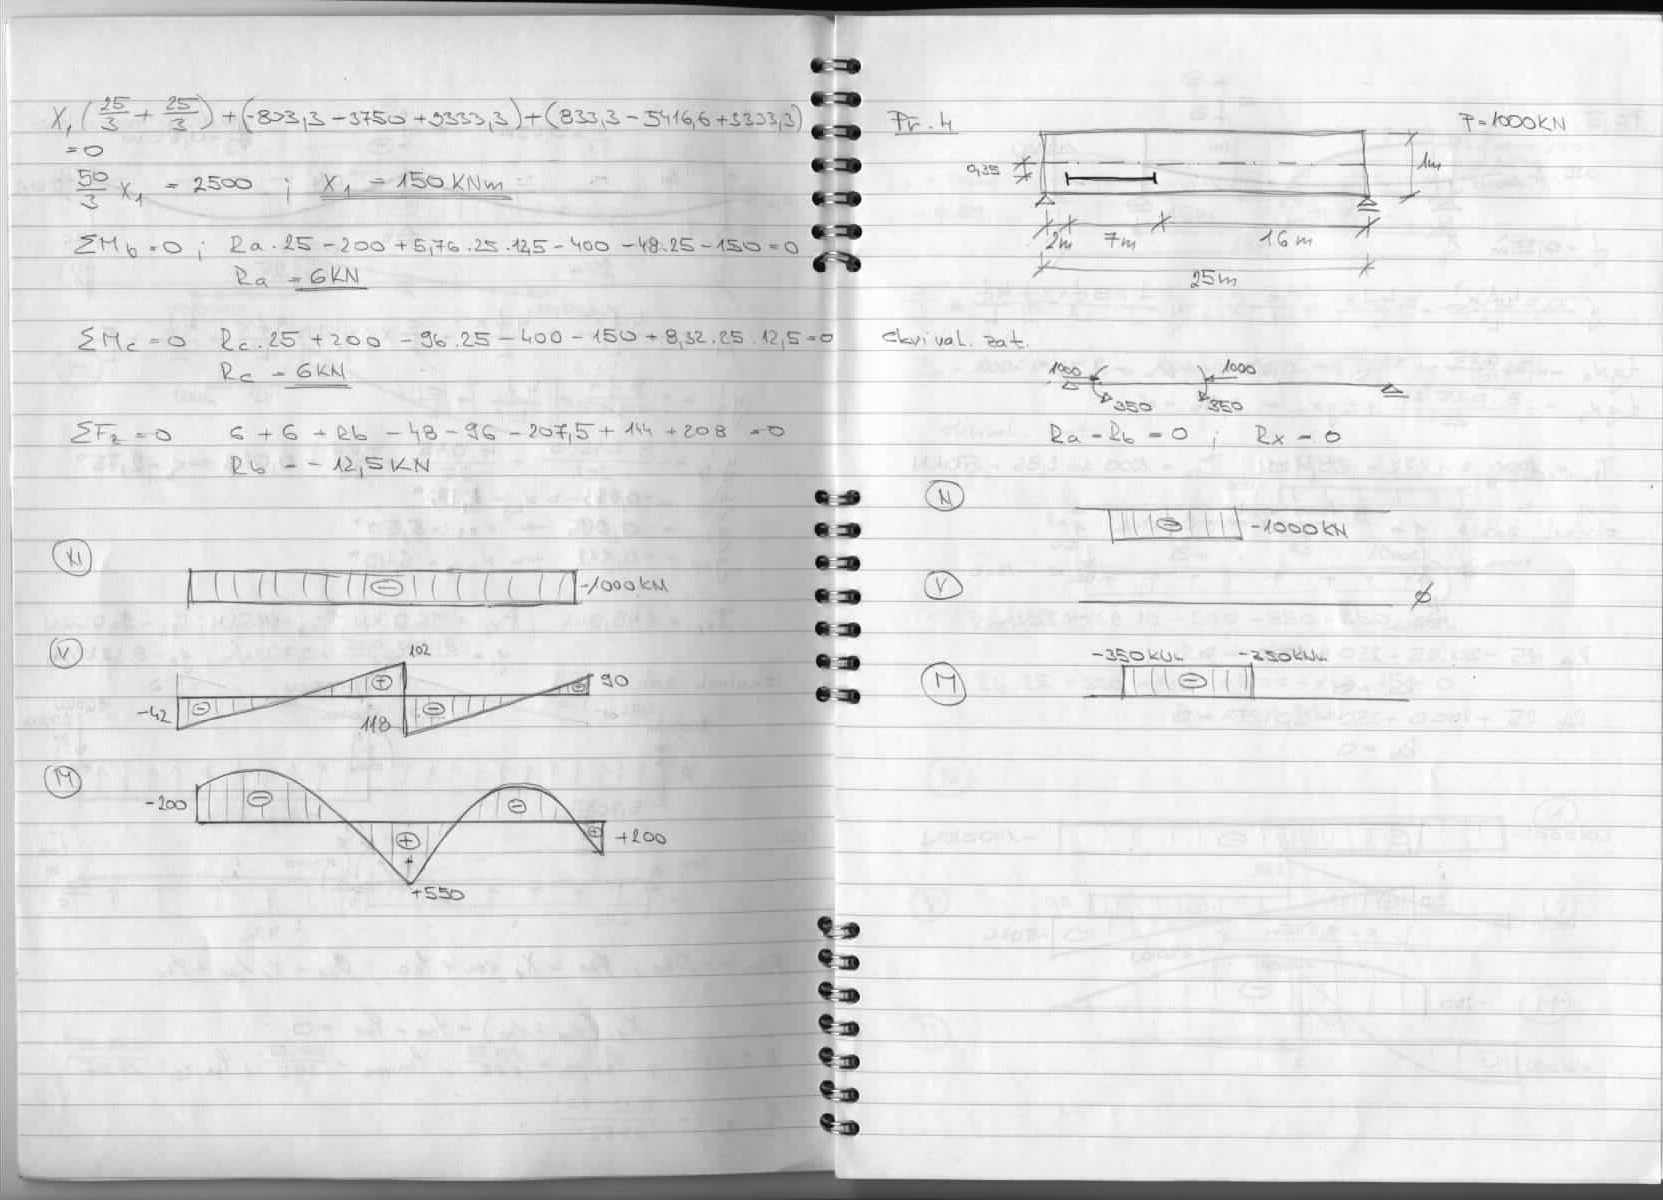 X₁ (25/3 + 25/3) + (-833,3 - 3750 + 3333,3) + (833,3 - 5416,6 + 3333,3)
= 0
50/3 X₁ = 2500 ; X₁ = 150 KNm
ΣMb = 0 ; Ra·25 - 200 + 5,76·25·12,5 - 400 - 48·25 - 150 = 0
Ra = 6KN
ΣMc = 0 Rc·25 + 200 - 96·25 - 400 - 150 + 8,32·25·12,5 = 0
Rc = 6KN
ΣFz = 0 6 + 6 + Rb - 48 - 96 - 207,5 + 144 + 208 = 0
Rb = -12,5KN
N
-1000KN
V
102
-42
118
90
M
-200
+550
+200
Pr. 4
P=1000KN
0,35
1m
2m 7m 16m
25m
ekvival. zat.
1000 1000
350 350
Ra = Rb = 0 ; Rx = 0
N
-1000KN
V
∅
M
-350KNm -350KNm